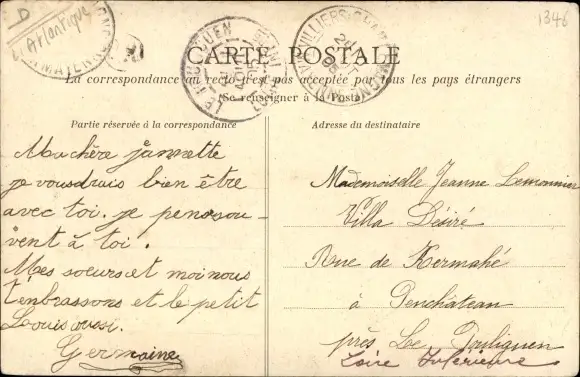 1346
D
Atlantique
CARTE POSTALE
La correspondance au recto n'est pas acceptée par tous les pays étrangers
(Se renseigner à la Poste)
Partie réservée à la correspondance
Ma chère jannette
je vousdrais bien être
avec toi. je pensesou-
vent à toi.
Mes soeurs et moi nous
t'enbrassons et le petit
Louis aussi.
Germaine
Adresse du destinataire
Mademoiselle Jeanne Lemonnier
Villa Désiré
Rue de Kermahé
à Penchâteau
près Le Pouliguen
Loire Inférieure